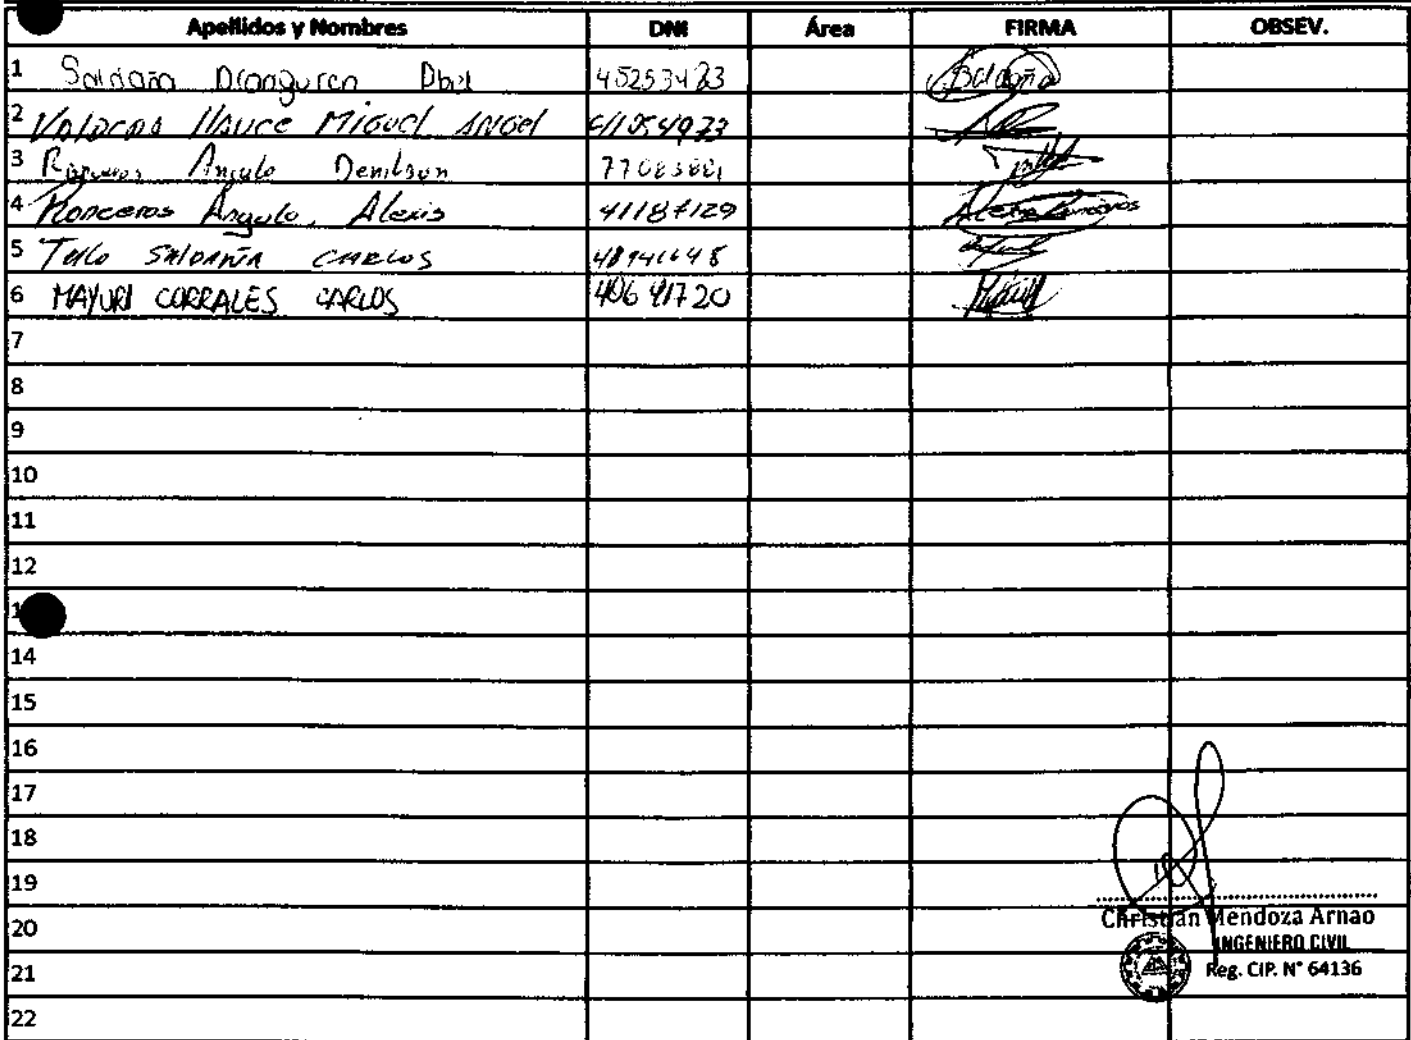 Apellidos y Nombres DNI Área FIRMA OBSEV.
1 Saldaña 45253423 Saldaña
2 Miguel Angel
3 Angulo Denilson
4 Ronceros Angulo, Alexis 41187129 Alexis Ronceros
5 Tello SALDAÑA CARLOS
6 MAYURI CORRALES CARLOS 40641720
7
8
9
10
11
12
14
15
16
17
18
19
20
21
22
Christian Mendoza Arnao
INGENIERO CIVIL
Reg. CIP. N° 64136